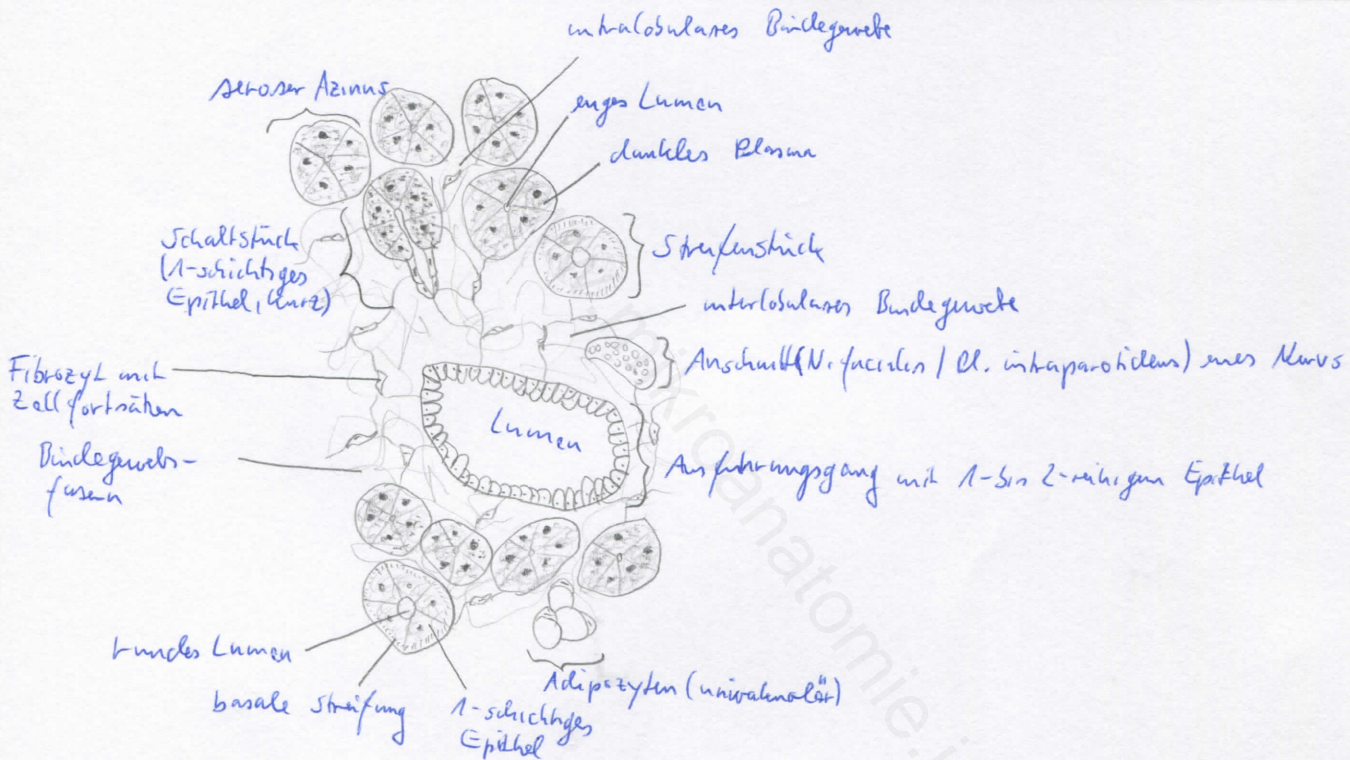 intralobulares Bindegewebe
seröser Azinus
enges Lumen
dunkles Plasma
Schaltstück
(1-schichtiges
Epithel, kurz)
Streifenstück
interlobulares Bindegewebe
Anschnitt (N. facialis / Pl. intraparotideus) eines Nervs
Fibrozyt mit
Zellfortsätzen
Lumen
Bindegewebs-
fasern
Ausführungsgang mit 1- bis 2-reihigem Epithel
rundes Lumen
basale Streifung
1-schichtiges
Epithel
Adipozyten (univakuolär)
mikroanatomie.